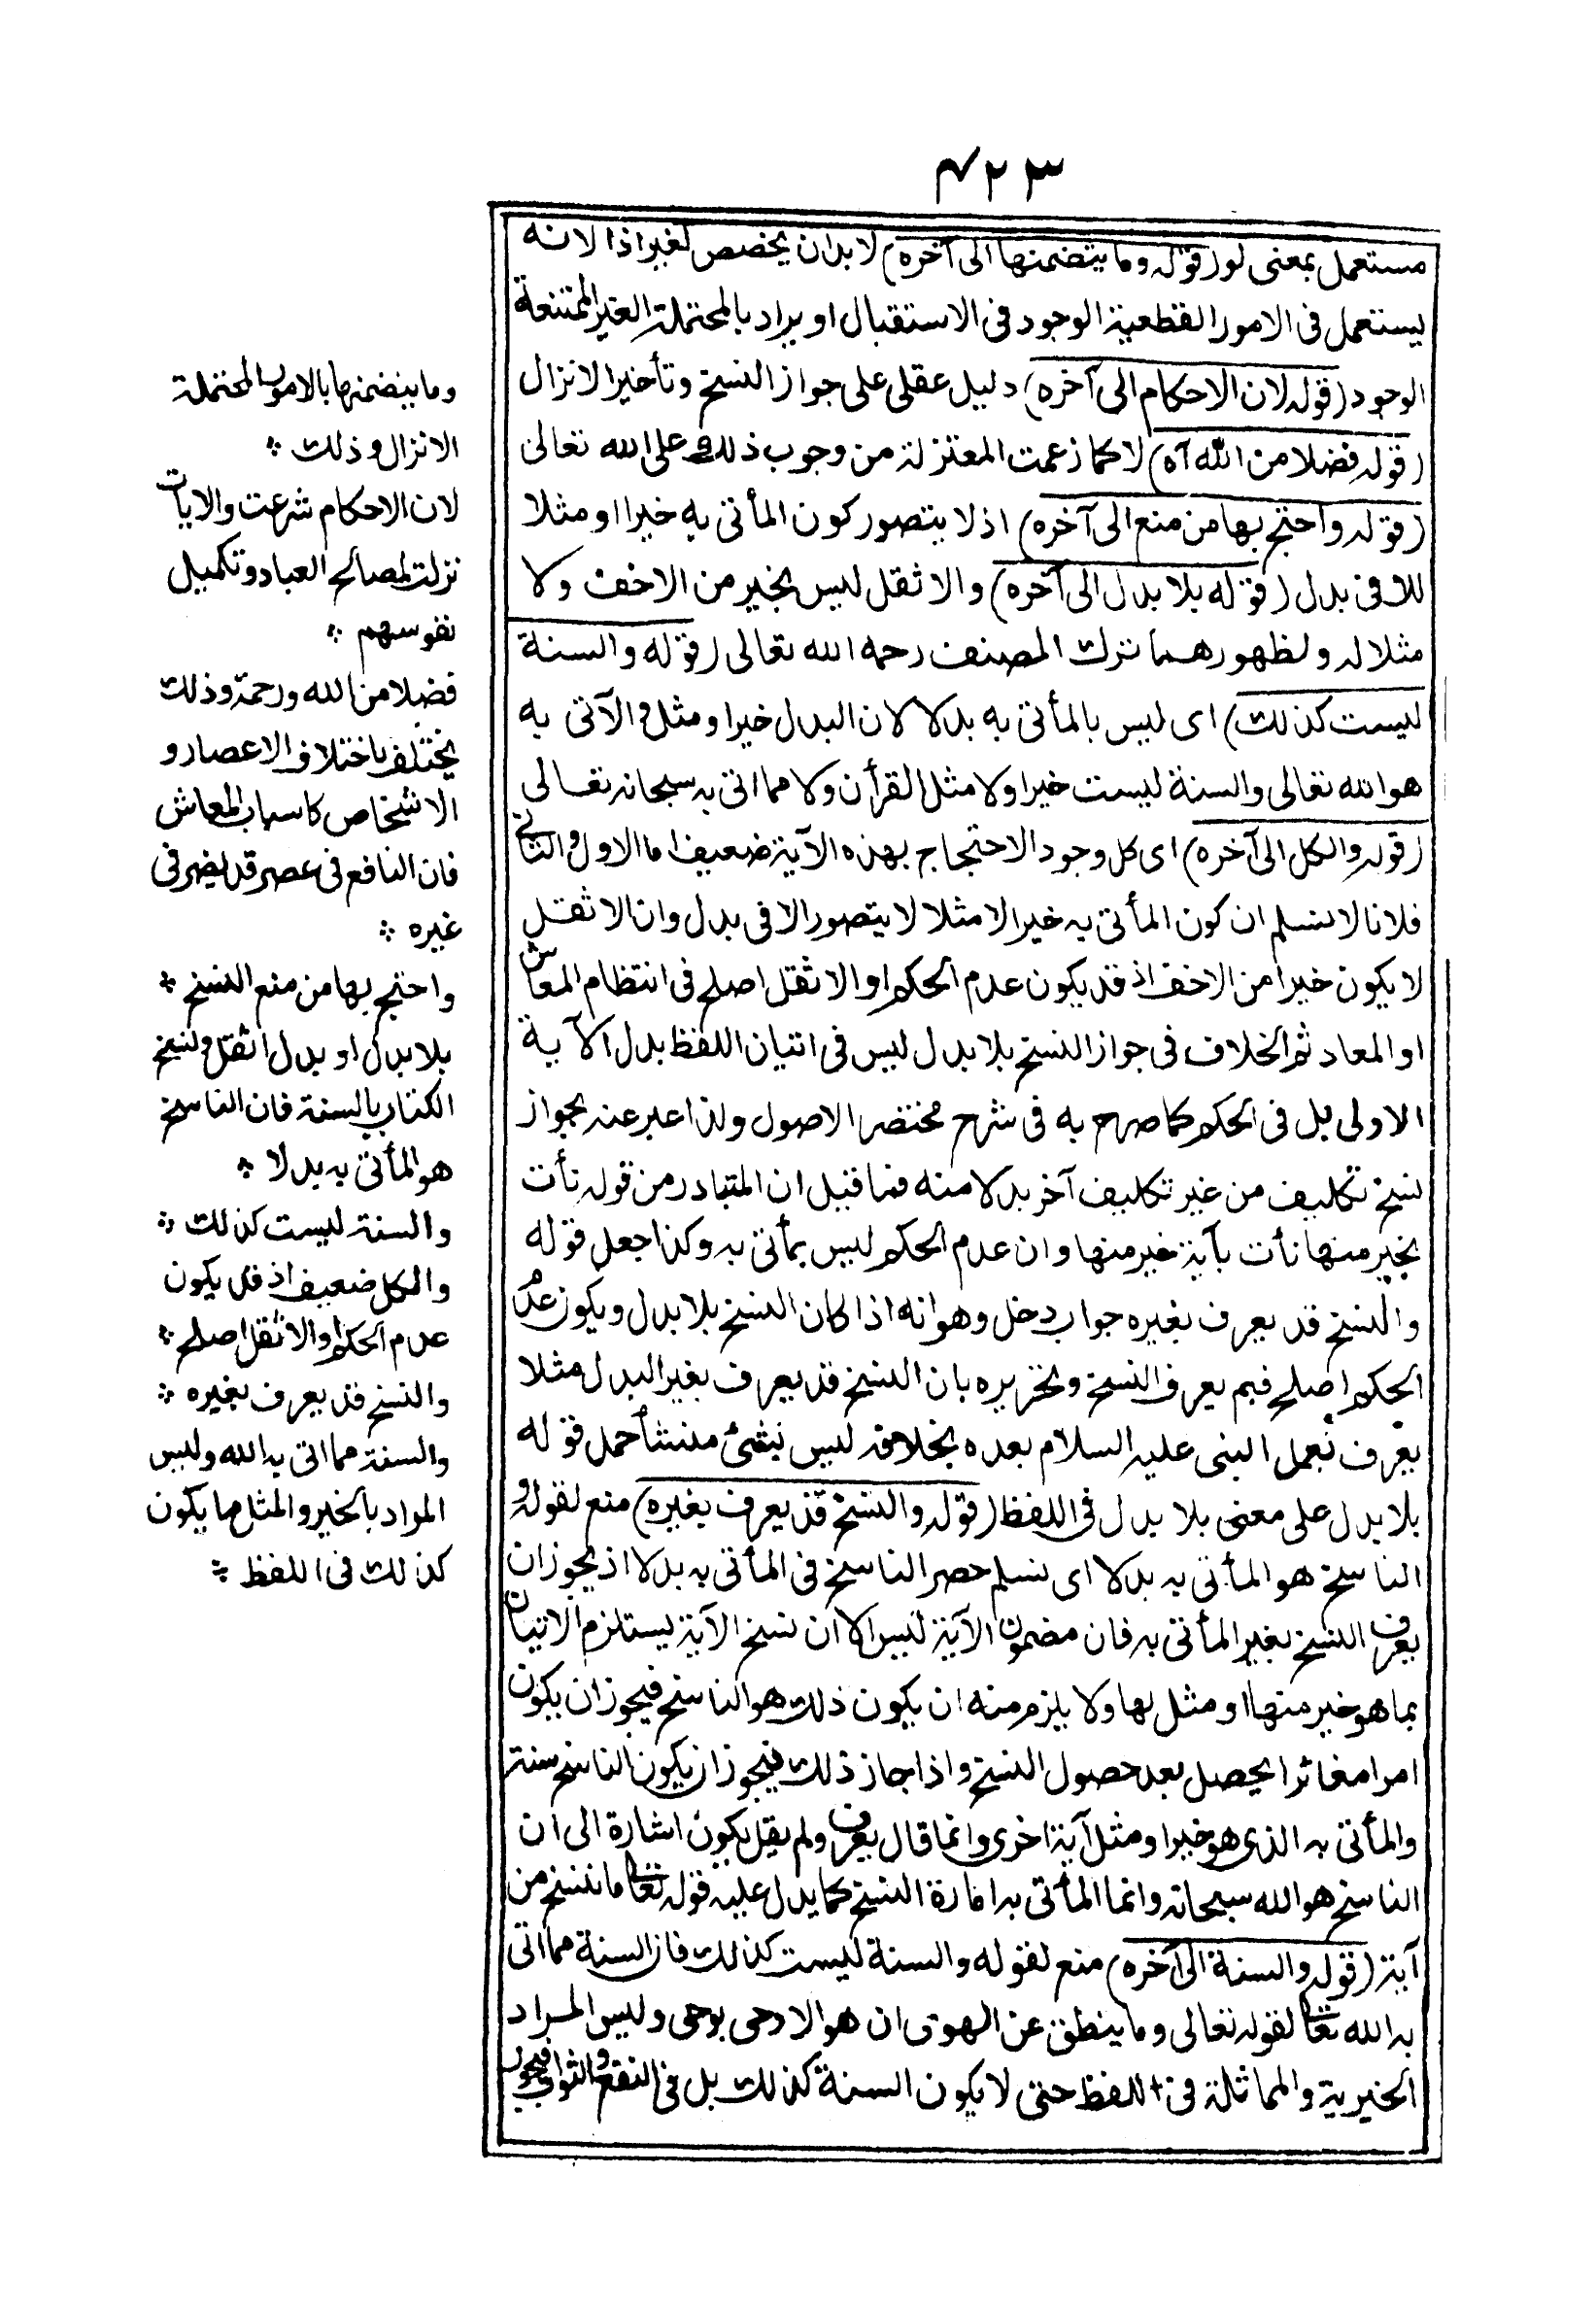 ٧٢٣
مستعمل بمعنى لو (قوله وما يتضمنها الى آخره) لا بد ان يخصص لغير اذا لانه
يستعمل فى الامور القطعية الوجود فى الاستقبال او يراد بالمحتملة الغير الممتنعة
الوجود (قوله لان الاحكام الى آخره) دليل عقلى على جواز النسخ وتأخير الانزال
(قوله فضلا من الله آه) لا كما زعمت المعتزلة من وجوب ذلك على الله تعالى
(قوله واحتج بها من منع الى آخره) اذ لا يتصور كون المأتى به خيرا او مثلا
الا فى بدل (قوله بلا بدل الى آخره) والاثقل ليس بخير من الاخف ولا
مثلا له ولظهورهما ترك المصنف رحمه الله تعالى (قوله والسنة
ليست كذلك) اى ليس بالمأتى به بدلا لان البدل خير او مثل والآتى به
هو الله تعالى والسنة ليست خيرا ولا مثل القرأن ولا مما اتى به سبحانه تعالى
(قوله والكل الى آخره) اى كل وجود الاحتجاج بهذه الآية ضعيف اما الاول والثانى
فلانا لا نسلم ان كون المأتى به خيرا او مثلا لا يتصور الا فى بدل وان الاثقل
لا يكون خيرا من الاخف اذ قد يكون عدم الحكم او الاثقل اصلح فى انتظام المعاش
او المعاد ثم الخلاف فى جواز النسخ بلا بدل ليس فى اتيان اللفظ بدل الآية
الاولى بل فى الحكم كما صرح به فى شرح مختصر الاصول ولذا عبر عنه بجواز
نسخ تكليف من غير تكليف آخر بدلا منه فما قيل ان المتبادر من قوله نأت
بخير منها نأت بآية خير منها وان عدم الحكم ليس بمأتى به وكذا جعل قوله
والنسخ قد يعرف بغيره جواب دخل وهو انه اذا كان النسخ بلا بدل ويكون عدم
الحكم اصلح فبم يعرف النسخ وتحريره بان النسخ قد يعرف بغير البدل مثلا
يعرف بعمل النبى عليه السلام بعده بخلافه ليس بشئ منشأ حمل قوله
بلا بدل على معنى بلا بدل فى اللفظ (قوله والنسخ قد يعرف بغيره) منع لقوله و
الناسخ هو المأتى به بدلا اى نسلم حصر الناسخ فى المأتى به بدلا اذ يجوز ان
يعرف النسخ بغير المأتى به فان مضمون الآية ليس الا ان نسخ الآية يستلزم الاتيان
بما هو خير منها او مثل لها ولا يلزم منه ان يكون ذلك هو الناسخ فيجوز ان يكون
امرا مغائرا يحصل بعد حصول النسخ واذا جاز ذلك فيجوز ان يكون الناسخ سنة
والمأتى به الذى هو خير او مثل آية اخرى وانما قال يعرف ولم يقل يكون اشارة الى ان
الناسخ هو الله سبحانه وانما المأتى به امارة النسخ كما يدل عليه قوله تعا ما ننسخ من
آية (قوله والسنة الى آخره) منع لقوله والسنة ليست كذلك فان السنة مما اتى
به الله تعا لقوله تعالى وما ينطق عن الهوى ان هو الا وحى يوحى وليس المراد
الخيرية والمماثلة فى اللفظ حتى لا يكون السنة كذلك بل فى النفع والثواب فيجوز
وما يتضمنها بالامور المحتملة
الانزال وذلك
لان الاحكام شرعت والايات
نزلت لمصالح العباد وتكميل
نفوسهم
فضلا من الله ورحمة وذلك
يختلف باختلاف الاعصار و
الاشخاص كاسباب المعاش
فان النافع فى عصر قد يضر فى
غيره
واحتج بها من منع النسخ
بلا بدل او بدل اثقل ونسخ
الكتاب بالسنة فان الناسخ
هو المأتى به بدلا
والسنة ليست كذلك
والكل ضعيف اذ قد يكون
عدم الحكم او الاثقل اصلح
والنسخ قد يعرف بغيره
والسنة مما اتى به الله وليس
المراد بالخير والمثل ما يكون
كذلك فى اللفظ